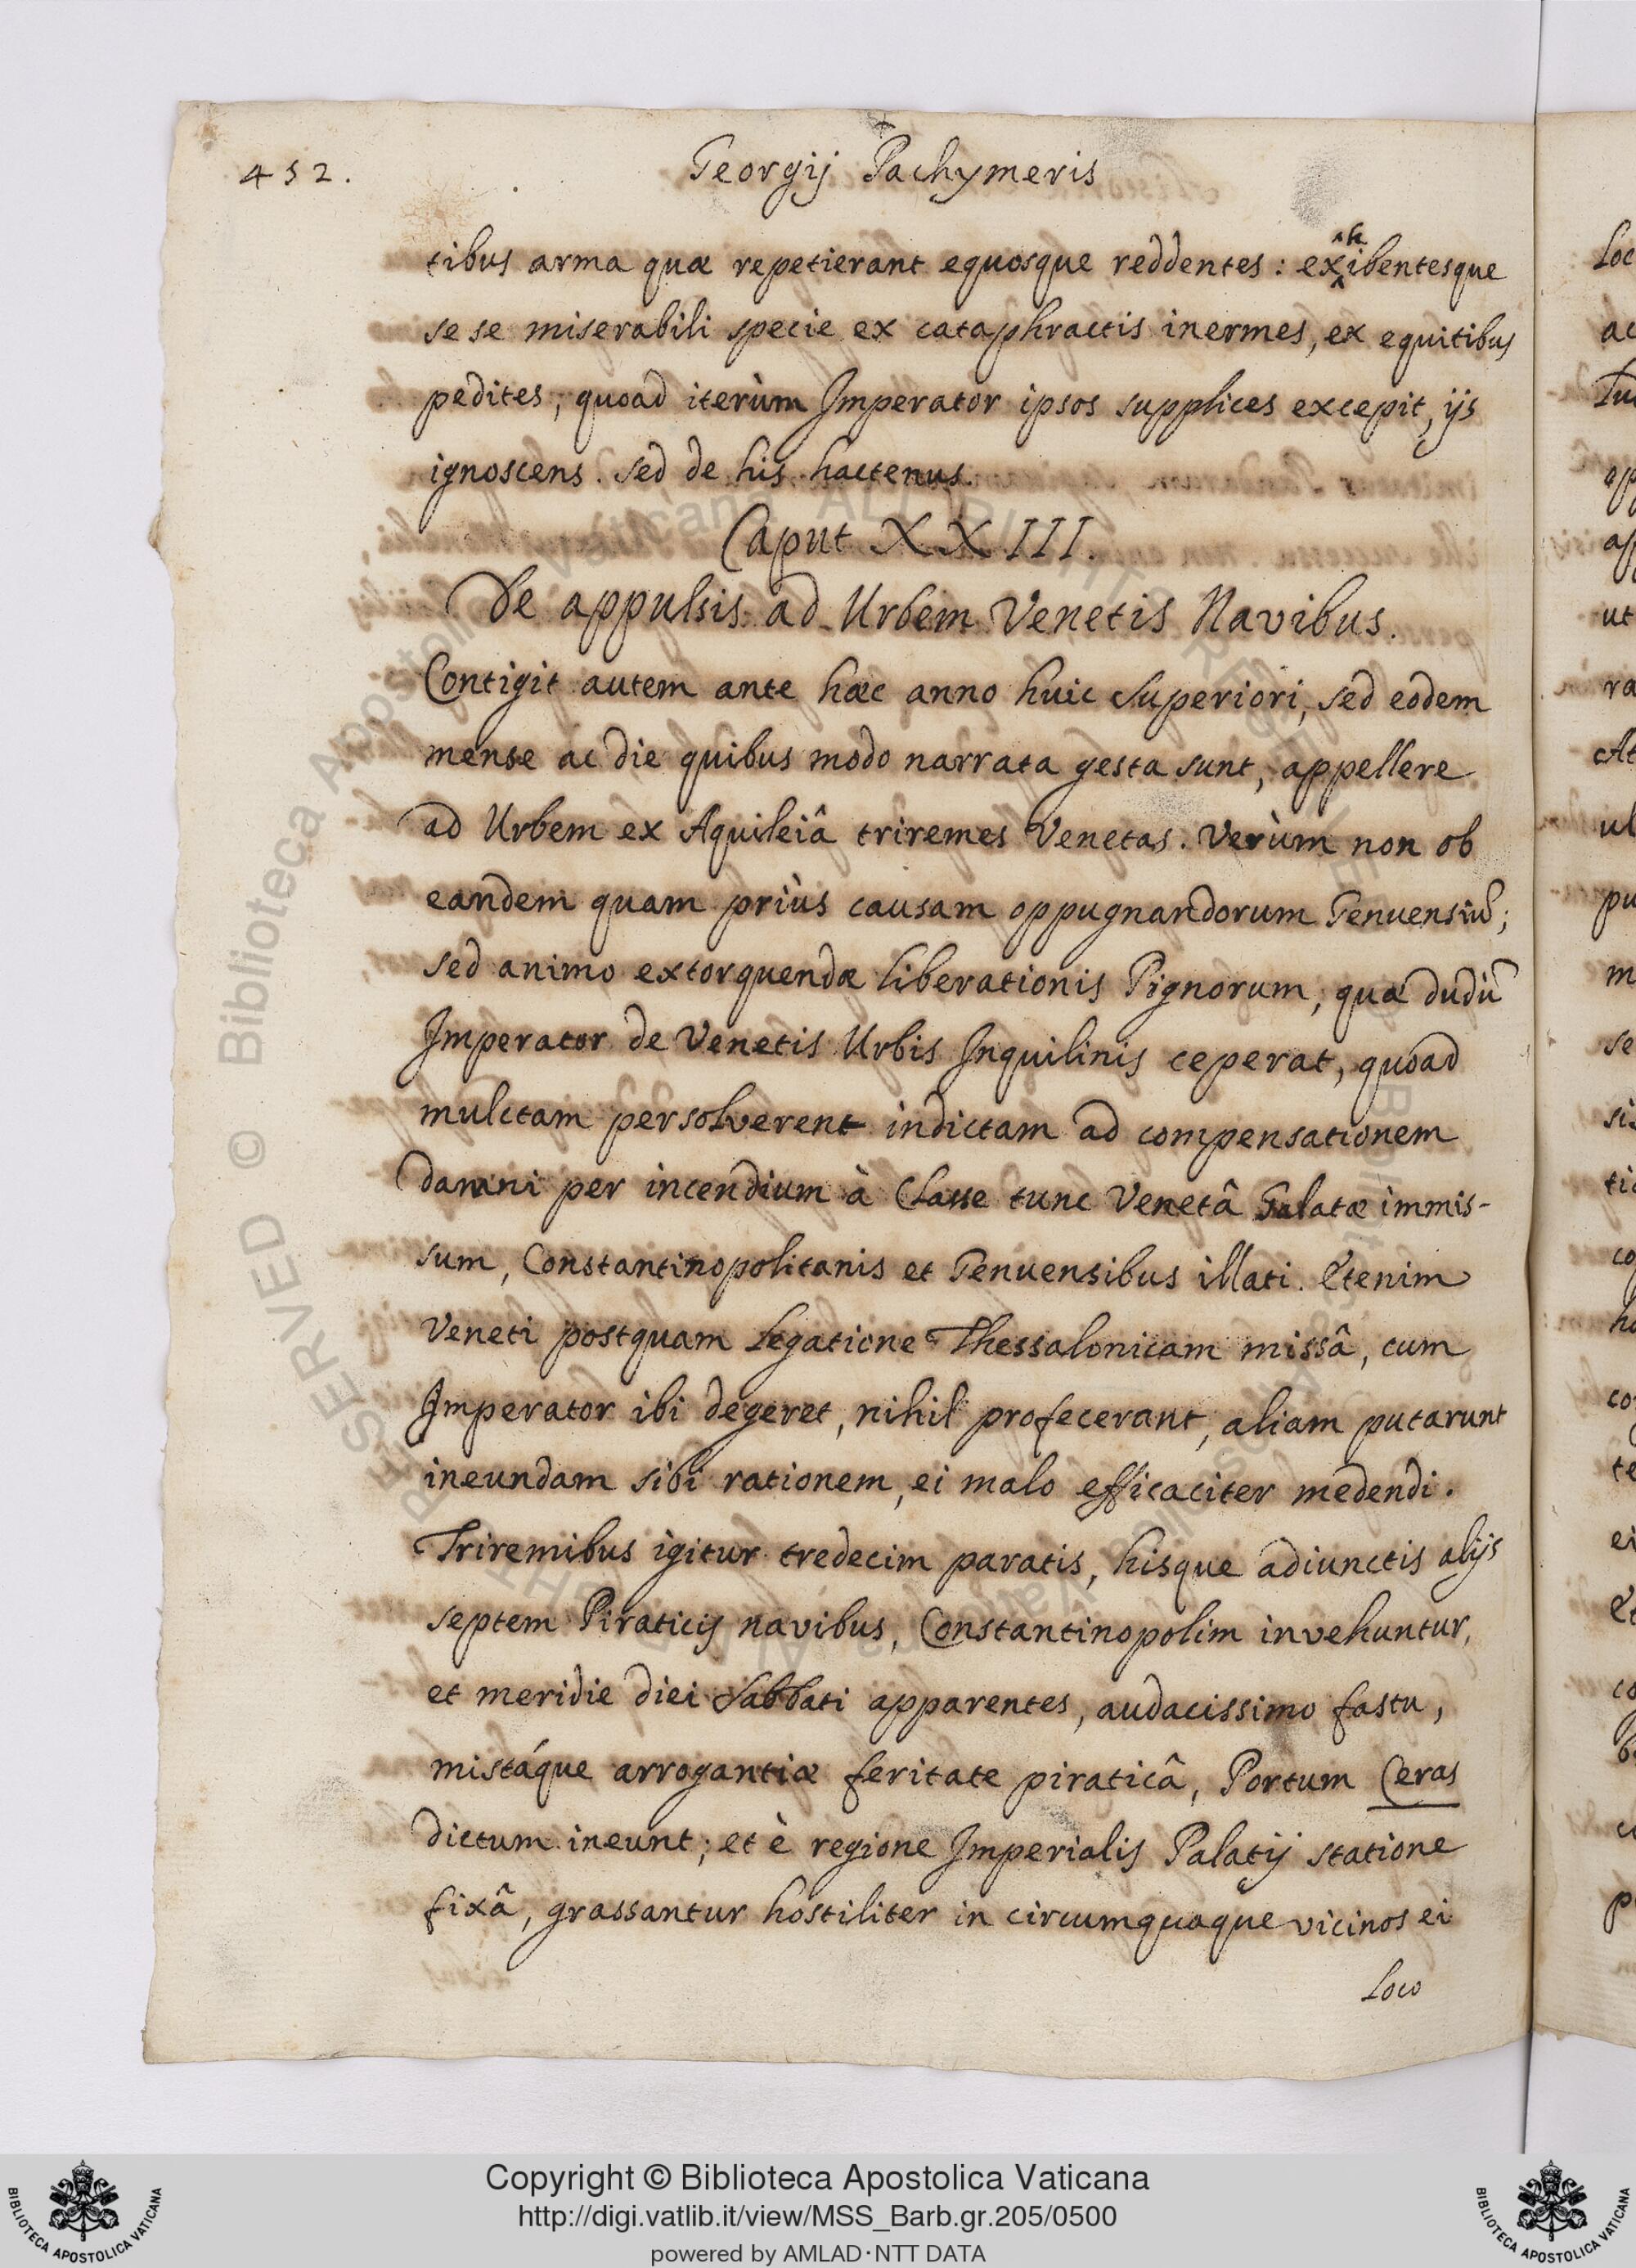 452.
Georgij Pachymeris
tibus arma quæ repetierant equosque reddentes : exhibentesque
sese miserabili specie ex cataphractis inermes, ex equitibus
pedites, quoad iterùm Imperator ipsos supplices excepit, ijs
ignoscens. Sed de his hactenus.
Caput XXIII.
De appulsis ad Urbem Venetis Navibus.
Contigit autem ante hæc anno huic superiori, sed eodem
mense ac die quibus modo narrata gesta sunt, appellere
ad Urbem ex Aquileiâ triremes Venetas. Verùm non ob
eandem quam priùs causam oppugnandorum Genuensiũ;
sed animo extorquendæ liberationis Pignorum, quæ dudũ
Imperator de Venetis Urbis Inquilinis ceperat, quoad
mulctam persolverent indictam ad compensationem
damni per incendium à Classe tunc Venetâ Galatæ immis-
sum, Constantinopolitanis et Genuensibus illati. Etenim
Veneti postquam Legatione Thessalonicam missâ, cum
Imperator ibi degeret, nihil profecerant, aliam putarunt
ineundam sibi rationem, ei malo efficaciter medendi.
Triremibus igitur tredecim paratis, hisque adiunctis alijs
septem Piraticis navibus, Constantinopolim invehuntur,
et meridie diei Sabbati apparentes, audacissimo fastu,
mistáque arrogantiæ feritate piraticâ, Portum Ceras
dictum ineunt; et è regione Imperialis Palatij statione
fixâ, grassantur hostiliter in circumquaque vicinos ei
Loco
Copyright © Biblioteca Apostolica Vaticana
http://digi.vatlib.it/view/MSS_Barb.gr.205/0500
powered by AMLAD·NTT DATA
BIBLIOTECA APOSTOLICA VATICANA
BIBLIOTECA APOSTOLICA VATICANA